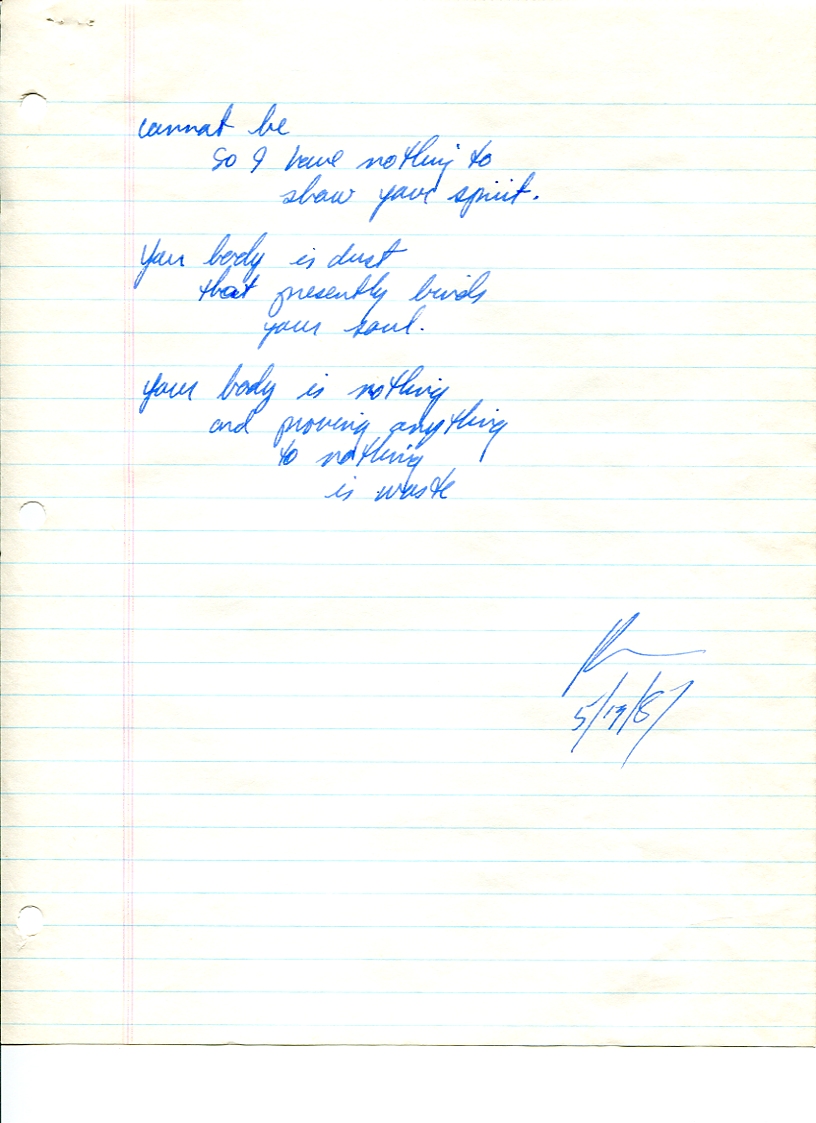 cannot be
So I have nothing to
show your spirit.
Your body is dust
that presently binds
your soul.
your body is nothing
and proving anything
to nothing
is waste
5/19/87